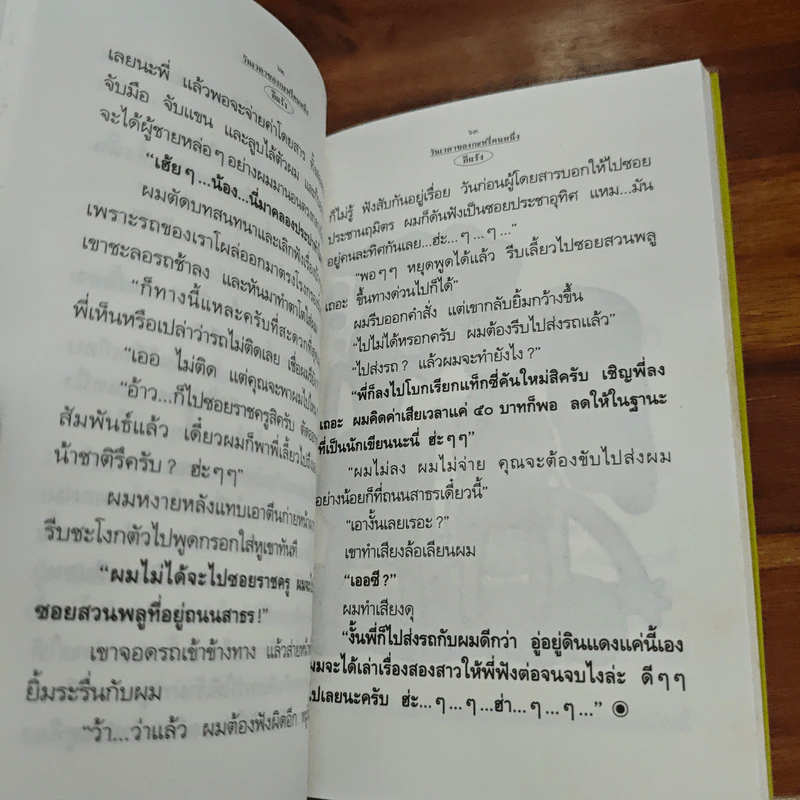 ๖๒
วันเวลาของกะหรี่คนหนึ่ง
อีแร้ง
เลยนะพี่ แล้วพอจะจ่ายค่าโดยสาร
จับมือ จับแขน และลูบไล้ตัวผม
จะได้ผู้ชายหล่อๆ อย่างผมมานอน
“เฮ้ยๆ...น้อง...นี่มาคลองประปา
ผมตัดบทสนทนาและเลิกฟังเรื่อง
เพราะรถของเราโผล่ออกมาตรงโรงกรอง
เขาชะลอรถช้าลง และหันมาทำตาโตใส่ผม
“ก็ทางนี้แหละครับที่สะดวกที่สุด
พี่เห็นหรือเปล่าว่ารถไม่ติดเลย เชื่อผมสิ
“เออ ไม่ติด แต่คุณจะพาผมไปไหน
“อ้าว...ก็ไปซอยราชครูสิครับ
สัมพันธ์แล้ว เดี๋ยวผมก็พาพี่เลี้ยวไป
น้าชาติรึครับ? ฮ่ะๆๆ”
ผมหงายหลังแทบเอาตีนก่ายหน้า
รีบชะโงกตัวไปพูดกรอกใส่หูเขาทันที
“ผมไม่ได้จะไปซอยราชครู
ซอยสวนพลูที่อยู่ถนนสาธร!”
เขาจอดรถเข้าข้างทาง แล้วส่ายหน้า
ยิ้มระรื่นกับผม
“ว้า...ว่าแล้ว ผมต้องฟังผิดอีก
๖๓
วันเวลาของกะหรี่คนหนึ่ง
อีแร้ง
ก็ไม่รู้ ฟังสับกันอยู่เรื่อย วันก่อนผู้โดยสารบอกให้ไปซอย
ประชานฤมิตร ผมก็ดันฟังเป็นซอยประชาอุทิศ แหม...มัน
อยู่คนละทิศกันเลย...ฮ่ะ...ๆ...ๆ...”
“พอๆๆ หยุดพูดได้แล้ว รีบเลี้ยวไปซอยสวนพลู
เถอะ ขึ้นทางด่วนไปก็ได้”
ผมรีบออกคำสั่ง แต่เขากลับยิ้มกว้างขึ้น
“ไปไม่ได้หรอกครับ ผมต้องรีบไปส่งรถแล้ว”
“ไปส่งรถ? แล้วผมจะทำยังไง?”
“พี่ก็ลงไปโบกเรียกแท็กซี่คันใหม่สิครับ เชิญพี่ลง
เถอะ ผมคิดค่าเสียเวลาแค่ ๕๐ บาทก็พอ ลดให้ในฐานะ
ที่เป็นนักเขียนนะนี่ ฮ่ะๆๆ”
“ผมไม่ลง ผมไม่จ่าย คุณจะต้องขับไปส่งผม
อย่างน้อยก็ที่ถนนสาธรเดี๋ยวนี้”
“เอางั้นเลยเรอะ?”
เขาทำเสียงล้อเลียนผม
“เออซี?”
ผมทำเสียงดุ
“งั้นพี่ก็ไปส่งรถกับผมดีกว่า อู่อยู่ดินแดงแค่นี้เอง
ผมจะได้เล่าเรื่องสองสาวให้พี่ฟังต่อจนจบไงล่ะ ดีๆๆ
ไปเลยนะครับ ฮ่ะ...ๆ...ๆ...ฮ่า...ๆ...ๆ...”